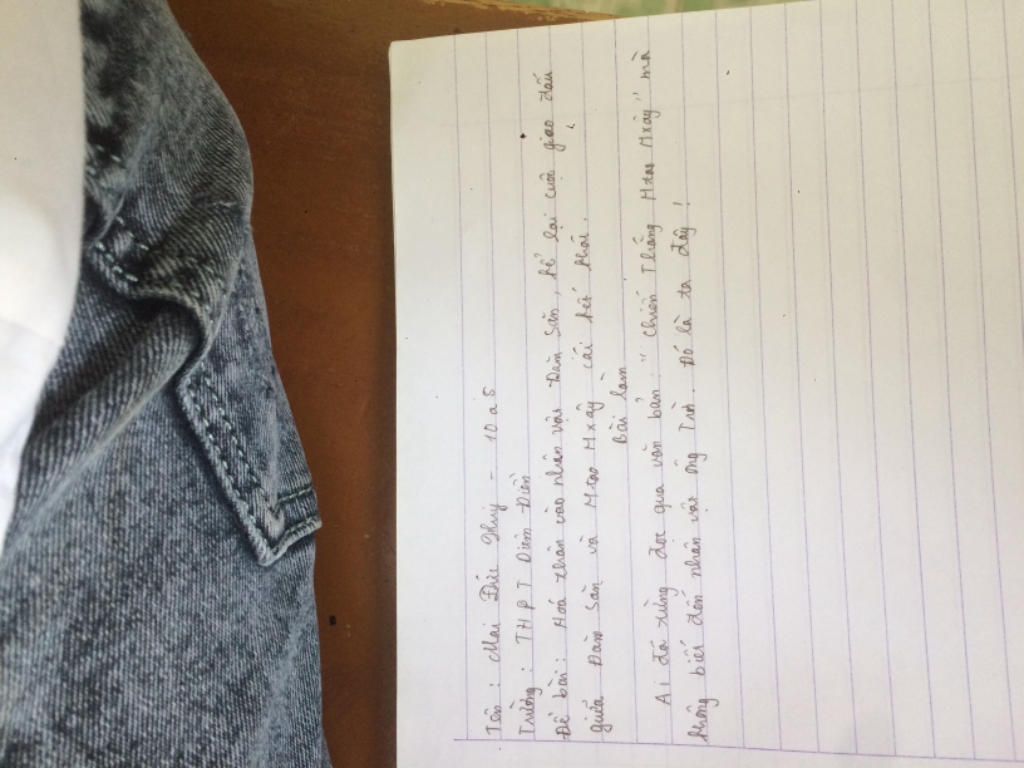 Tên : Mai Đức Thuỷ - 10a5
Trường : THPT Diêm Điền
Đề bài : Hoá thân vào nhân vật Đăm Săn, kể lại cuộc giao đấu
giữa Đăm Săn và Mtao Mxây cái kết khác.
Bài làm
Ai đã từng đọc qua văn bản : " Chiến Thắng Mtao Mxây " mà
không biết đến nhân vật ông Trời. Đó là ta đây !